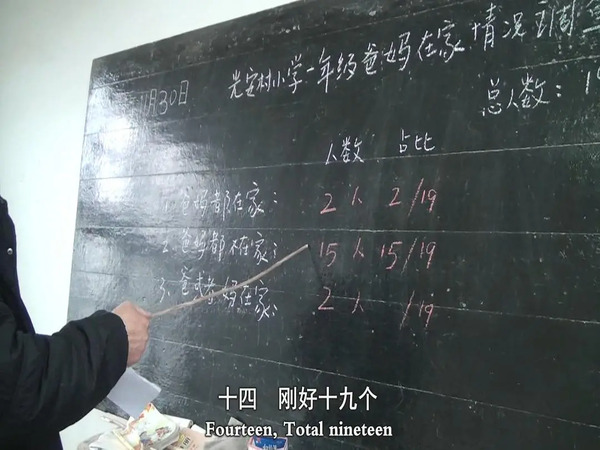 11月30日 光安村小学一年级爸妈在家情况调查
总人数：19
人数 占比
1、爸妈都在家： 2人 2/19
2、爸妈都不在家： 15人 15/19
3、爸或者妈在家： 2人 /19
十四 刚好十九个
Fourteen, Total nineteen